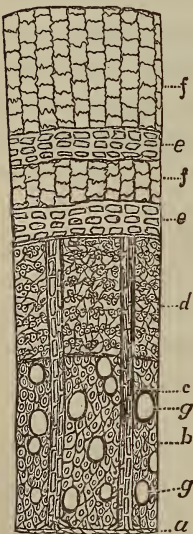 f
e
f
e
d
c
g
b
g
a